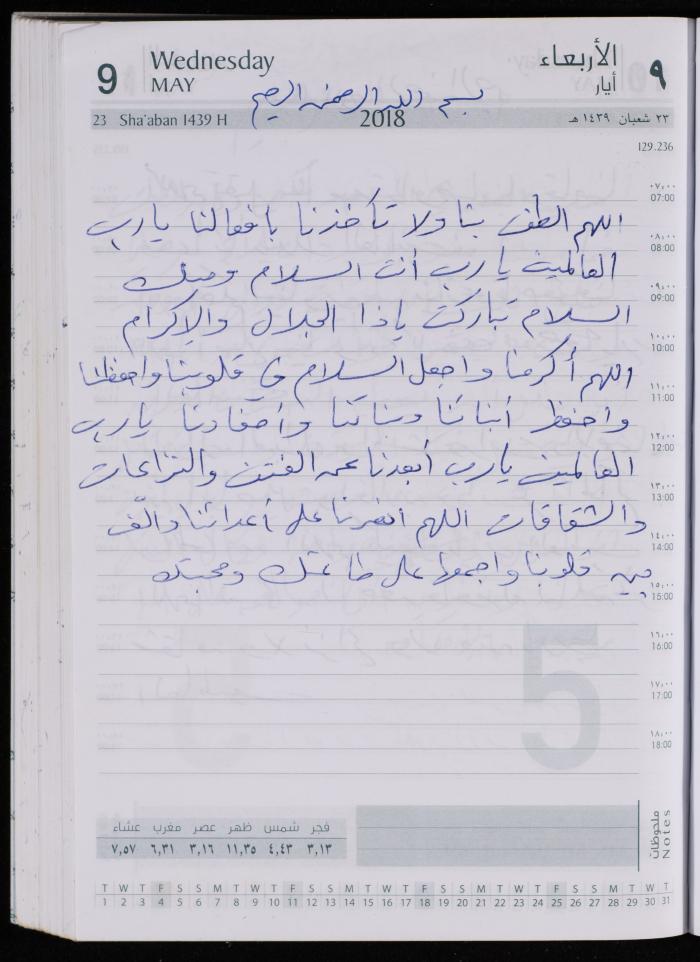 9 Wednesday الأربعاء ٩
MAY أيار
بسم الله الرحمن الرحيم
23 Sha'aban 1439 H 2018 ٢٣ شعبان ١٤٣٩ هـ
129.236
٠٧,٠٠
07:00
اللهم الطف بنا ولا تأخذنا بافعالنا يا رب
٠٨,٠٠
08:00
العالمين يا رب أنت السلام ومنك
٠٩,٠٠
09:00
السلام تباركت ياذا الجلال والإكرام
١٠,٠٠
10:00
اللهم أكرمنا واجعل السلام في قلوبنا واحفظنا
١١,٠٠
11:00
واحفظ أبنائنا وبناتنا وأحفادنا يا رب
١٢,٠٠
12:00
العالمين يا رب أبعدنا عن الفتن والنزاعات
١٣,٠٠
13:00
والشقاقات اللهم انصرنا على أعدائنا وألّف
١٤,٠٠
14:00
بين قلوبنا واجمعها على طاعتك ومحبتك
١٥,٠٠
15:00
١٦,٠٠
16:00
5
١٧,٠٠
17:00
١٨,٠٠
18:00
فجر شمس ظهر عصر مغرب عشاء
٣,١٣ ٤,٤٣ ١١,٣٥ ٣,١٦ ٦,٣١ ٧,٥٧
ملحوظات
Notes
T W T F S S M T W T F S S M T W T F S S M T W T F S S M T W T
1 2 3 4 5 6 7 8 9 10 11 12 13 14 15 16 17 18 19 20 21 22 23 24 25 26 27 28 29 30 31